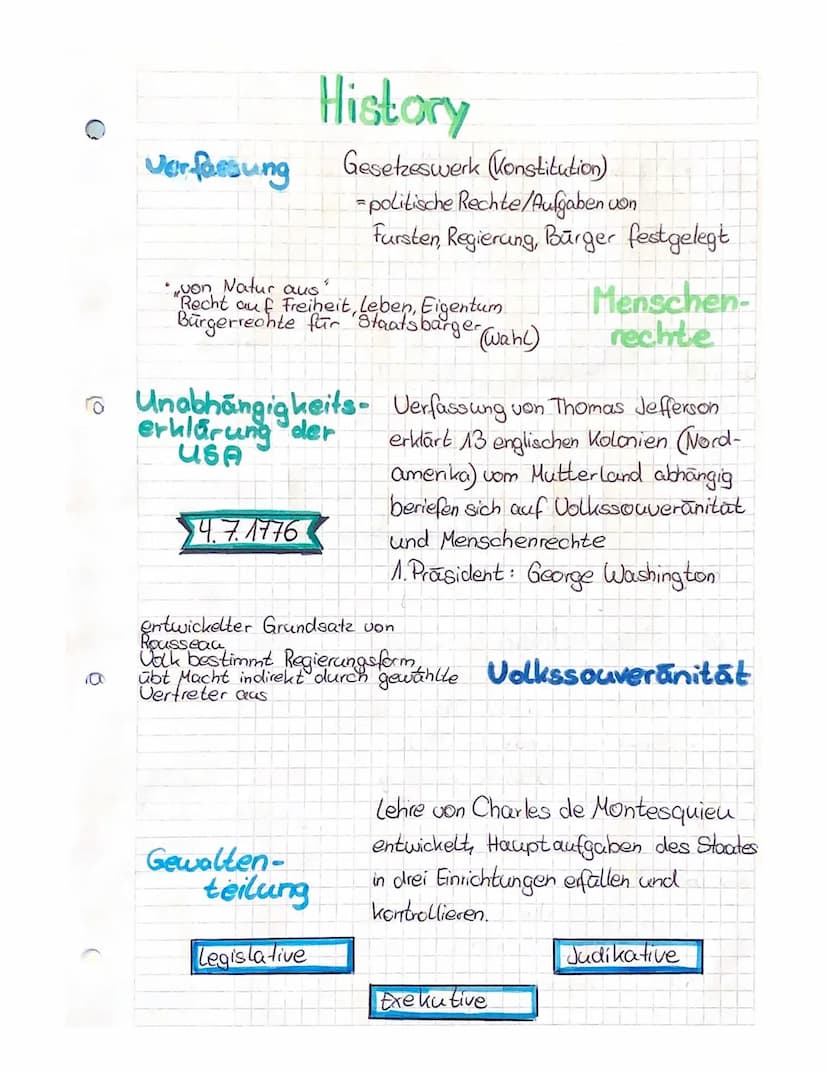 History
Verfassung
Gesetzeswerk (Konstitution)
= politische Rechte/Aufgaben von
Fürsten, Regierung, Bürger festgelegt
• „von Natur aus“
Recht auf Freiheit, Leben, Eigentum
Bürgerrechte für Staatsbürger
(Wahl)
Menschen-
rechte
Unabhängigkeits-
erklärung der
USA
4.7.1776
Verfassung von Thomas Jefferson
erklärt 13 englischen Kolonien (Nord-
amerika) vom Mutterland abhängig
beriefen sich auf Volkssouveränität
und Menschenrechte
1. Präsident: George Washington
entwickelter Grundsatz von
Rousseau
Volk bestimmt Regierungsform,
übt Macht indirekt durch gewählte
Vertreter aus
Volkssouveränität
Gewalten-
teilung
Lehre von Charles de Montesquieu
entwickelt, Hauptaufgaben des Staates
in drei Einrichtungen erfüllen und
kontrollieren.
Legislative
Judikative
Exekutive